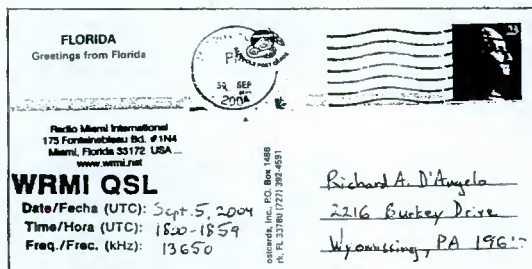 FLORIDA
Greetings from Florida
30 SEP
2004
Radio Miami International
175 Fontainebleau Bd. #1N4
Miami, Florida 33172 USA
www.wrmi.net
WRMI QSL
Date/Fecha (UTC): Sept. 5, 2004
Time/Hora (UTC): 1800-1859
Freq./Frec. (kHz): 13650
ostcards, Inc., P.O. Box 1486
rk, FL 33780 (727) 392-4591
Richard A. D'Angelo
2216 Burkey Drive
Wyomissing, PA